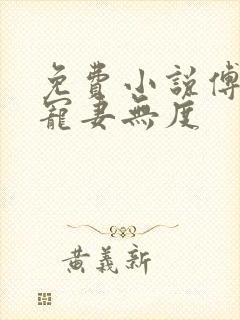 免費小說傅
寵妻無度
黃義新